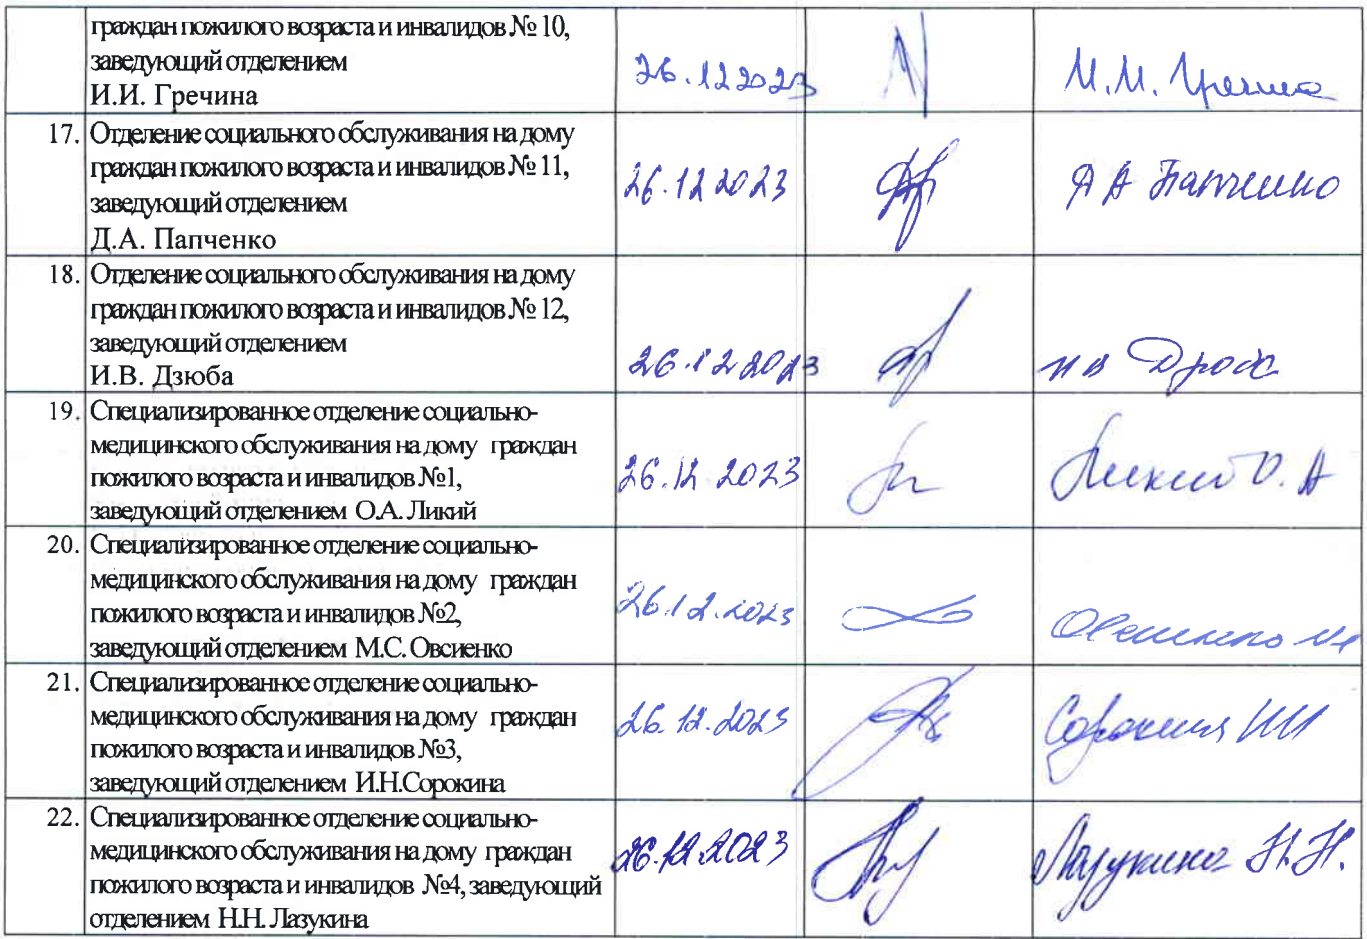 граждан пожилого возраста и инвалидов № 10,
заведующий отделением
И.И. Гречина
26.12 2023
И.И. Гречина
17. Отделение социального обслуживания на дому
граждан пожилого возраста и инвалидов № 11,
заведующий отделением
Д.А. Папченко
26.12 2023
Д А Папченко
18. Отделение социального обслуживания на дому
граждан пожилого возраста и инвалидов № 12,
заведующий отделением
И.В. Дзюба
26.12 2023
И В
19. Специализированное отделение социально-
медицинского обслуживания на дому граждан
пожилого возраста и инвалидов №1,
заведующий отделением О.А. Ликий
26.12 2023
Ликий О. А
20. Специализированное отделение социально-
медицинского обслуживания на дому граждан
пожилого возраста и инвалидов №2,
заведующий отделением М.С. Овсиенко
26.12.2023
Овсиенко
21. Специализированное отделение социально-
медицинского обслуживания на дому граждан
пожилого возраста и инвалидов №3,
заведующий отделением И.Н.Сорокина
26.12.2023
Сорокина ИН
22. Специализированное отделение социально-
медицинского обслуживания на дому граждан
пожилого возраста и инвалидов №4, заведующий
отделением Н.Н. Лазукина
26.12.2023
Лазукина Н.Н.